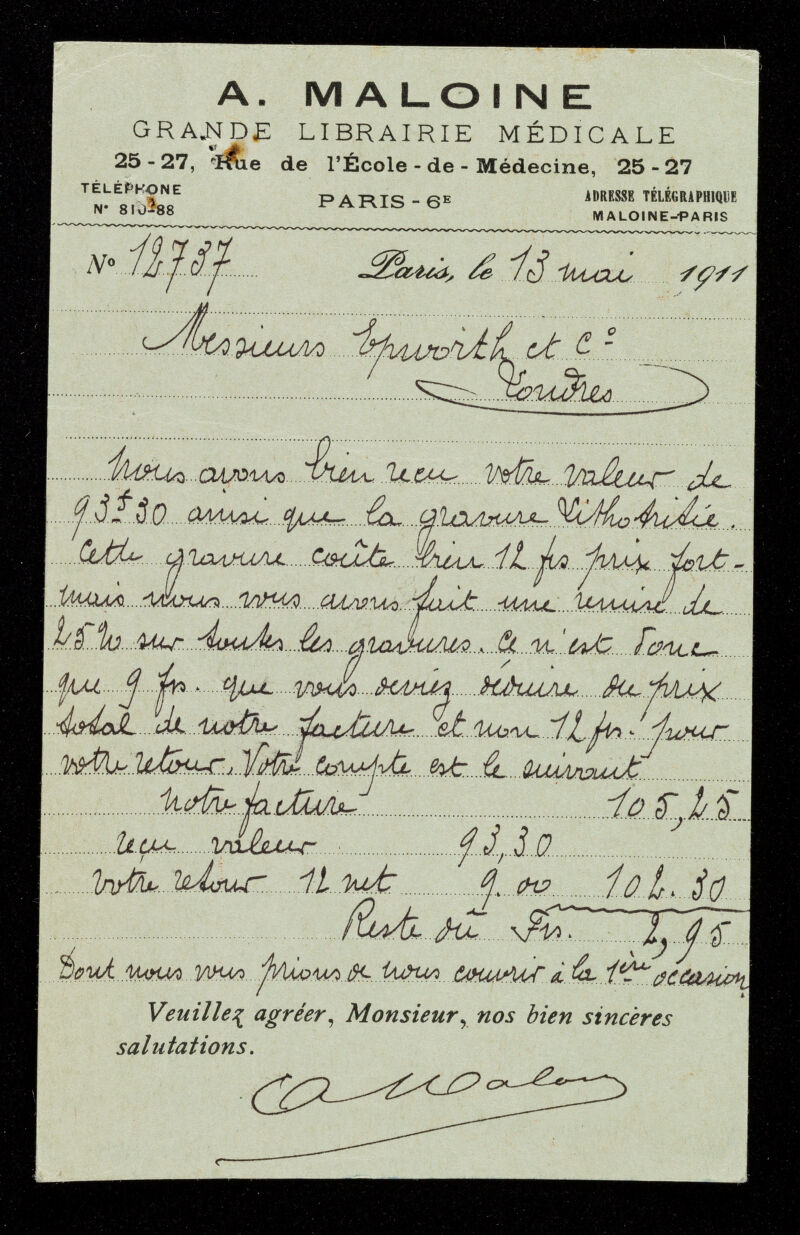 A. MALOINE
GRANDE LIBRAIRIE MÉDICALE
25-27, Rue de l'École-de-Médecine, 25-27
TÉLÉPHONE
N° 810-88
PARIS-6E
ADRESSE TÉLÉGRAPHIQUE
MALOINE-PARIS
N° 12737 Paris, le 13 mai 1911
Messieurs Epworth et C°
Londres
Nous avons bien reçu votre valeur de
93f30 ainsi que la gravure Lithotritie.
Cette gravure coûte bien 12 frs prix fort-
mais nous vous avons fait une remise de
25% sur toutes les gravures. Ce n'est donc
que 9 frs. que vous deviez déduire du prix
total de notre facture et non 12 frs. pour
votre retour. Votre compte est le suivant
Notre facture 105,25
reçu valeur 93,30
votre retour 12 net 9.00 102.30
Reste dû Frs. 2,95
Dont nous vous prions de nous couvrir à la 1ère occasion
Veuillez agréer, Monsieur, nos bien sincères
salutations.
A Maloine